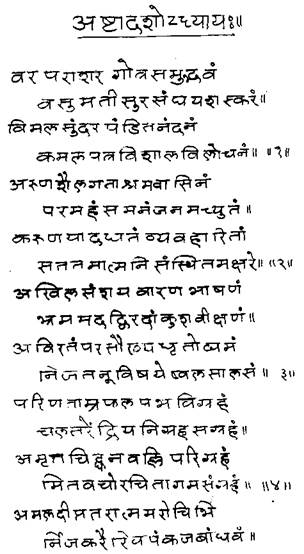 अष्टादशोऽध्यायः॥
वर पराशर गोत्रसमुद्भवं
वसुमतीसुरसंघयशस्करं॥
विमलसुंदर पंडितनंदनं
कमलपत्रविशालविलोचनं॥ ॥१॥
अरुणशैलगताश्रमवासिनं
परमहंसमनंजनमच्युतं॥
करुणयादधतं व्यवहारितां
सततमात्मनि संस्थितमक्षरे॥ ॥२॥
अखिलसंशय वारण भाषणं
भ्रममदद्विरदांकुशवीक्षणं॥
अविरतंपरसौख्यधृतोद्यमं
निजतनूविषयेष्वलसालसं॥ ३॥
परिणताम्रफलप्रभविग्रहं
चलतरेंद्रियनिग्रहसग्रहं॥
अमृतचिद्धनवल्लिपरिग्रहं
मितवचोरचितागमसंग्रहं॥ ॥४॥
अमलदीप्ततरात्ममरोचिभि
र्निजकरैरिवपंकजबांधवं॥